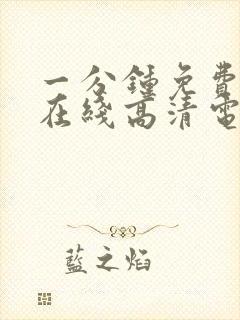 一分鍾免費
在綫高清電
藍之焰